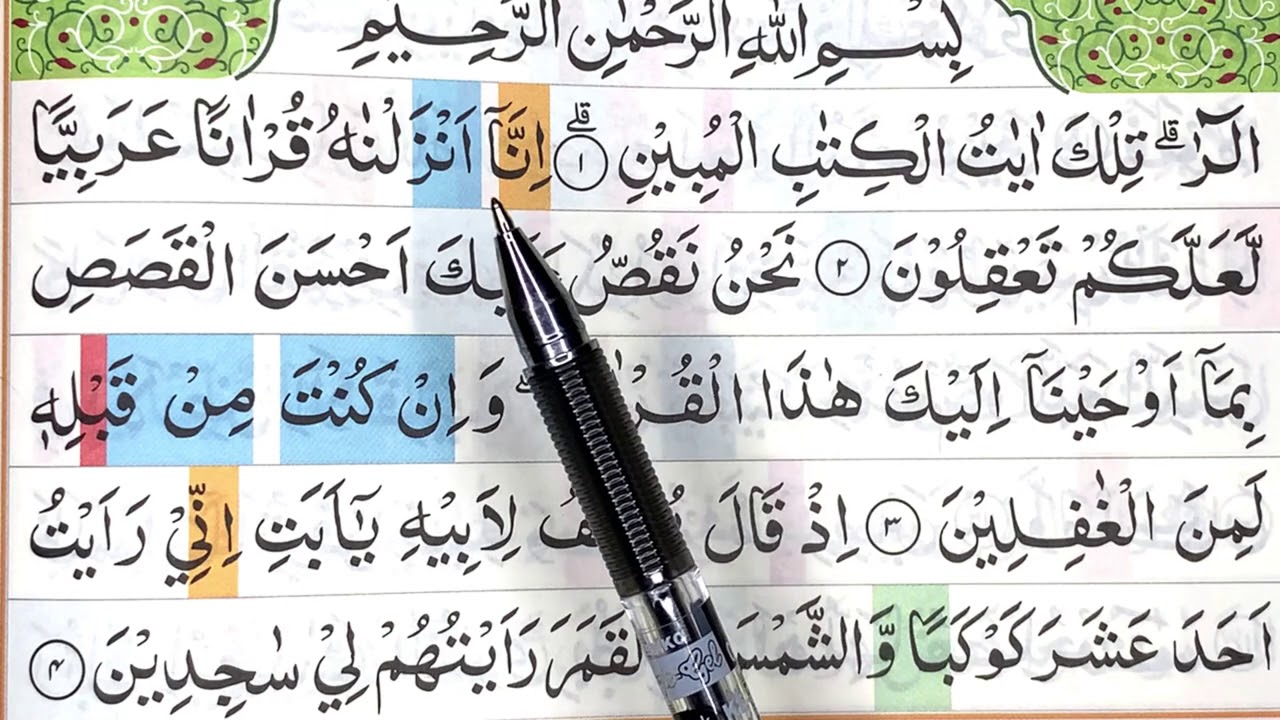 بِسْمِ اللّٰهِ الرَّحْمٰنِ الرَّحِيْمِ
الٓرٰ ۣ تِلْكَ اٰيٰتُ الْكِتٰبِ الْمُبِيْنِ ۣ ﴿۱﴾ اِنَّاۤ اَنْزَلْنٰهُ قُرْاٰنًا عَرَبِيًّا
لَّعَلَّكُمْ تَعْقِلُوْنَ ﴿۲﴾ نَحْنُ نَقُصُّ اَحْسَنَ الْقَصَصِ
بِمَاۤ اَوْحَيْنَاۤ اِلَيْكَ هٰذَا وَاِنْ كُنْتَ مِنْ قَبْلِهٖ
لَمِنَ الْغٰفِلِيْنَ ﴿۳﴾ اِذْ قَالَ لِاَبِيْهِ يٰۤاَبَتِ اِنِّيْ رَاَيْتُ
اَحَدَ عَشَرَ كَوْكَبًا وَّالشَّمْسَ رَاَيْتُهُمْ لِيْ سٰجِدِيْنَ ﴿۴﴾